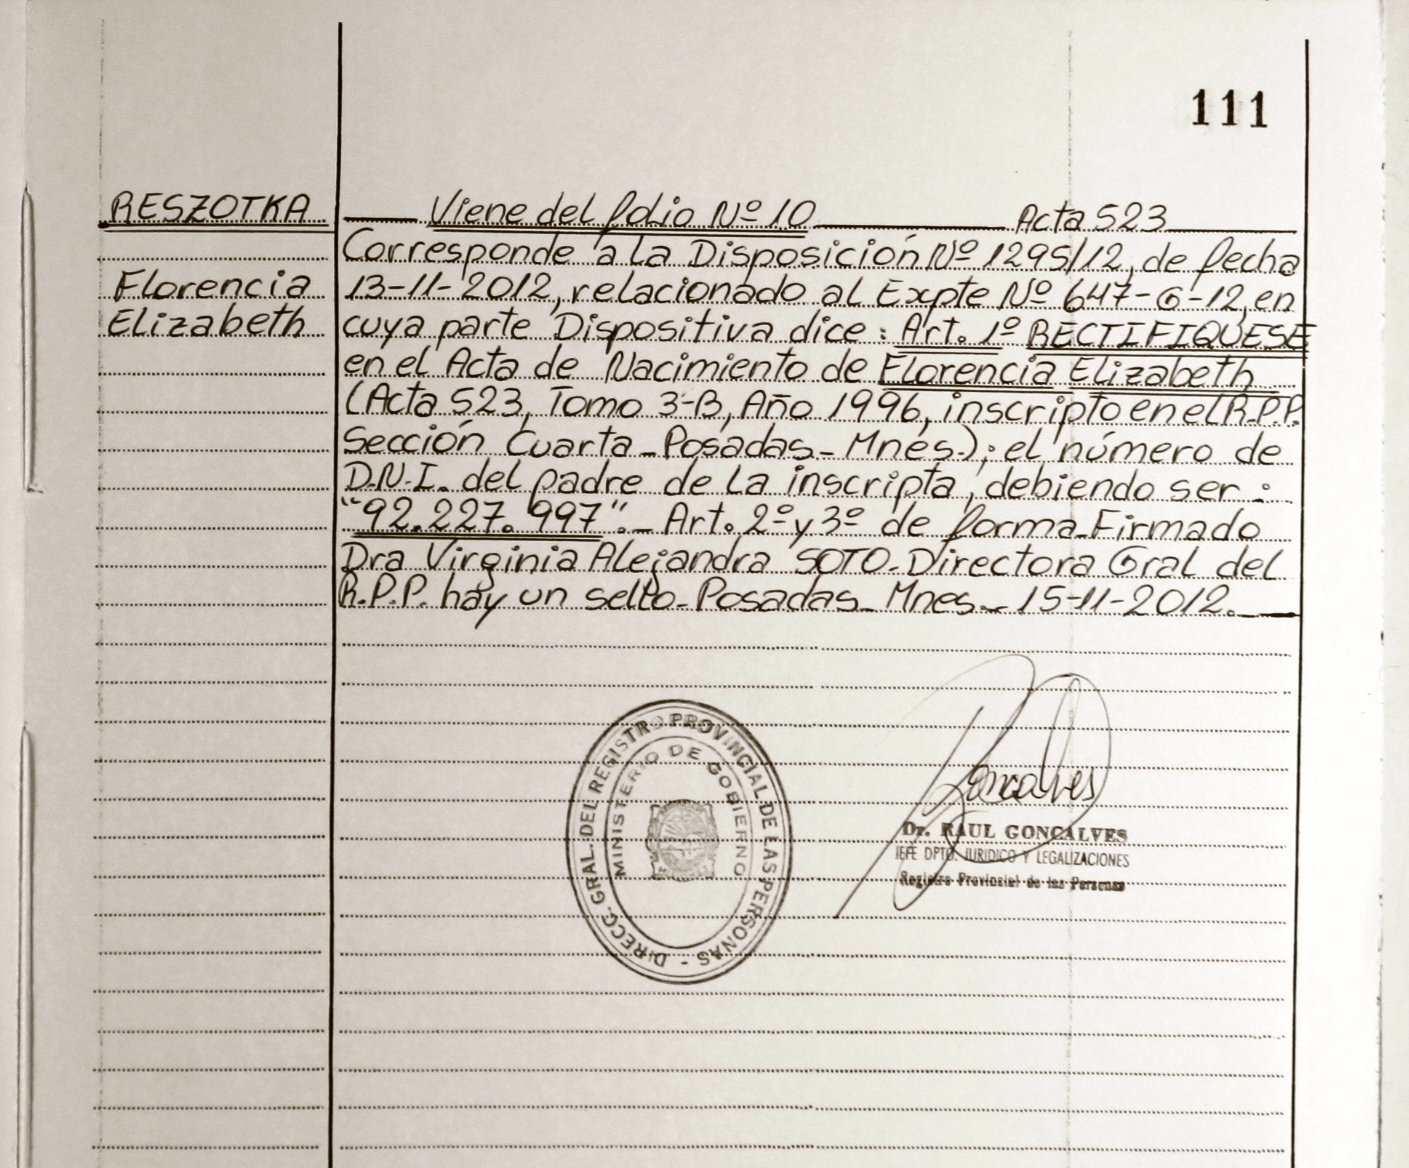 111
RESZOTKA
Florencia
Elizabeth
Viene del folio Nº 10 Acta 523
Corresponde a la Disposición Nº 1295/12, de fecha
13-11-2012, relacionado al Expte Nº 647-G-12, en
cuya parte Dispositiva dice: Art. 1º RECTIFIQUESE
en el Acta de Nacimiento de Florencia Elizabeth
(Acta 523, Tomo 3-B, Año 1996, inscripto en el R.P.P.
Sección Cuarta-Posadas-Mnes.); el número de
D.N.I. del padre de la inscripta, debiendo ser:
"92.227.997".- Art. 2º y 3º de forma-Firmado
Dra Virginia Alejandra SOTO-Directora Gral del
R.P.P. hay un sello-Posadas-Mnes.-15-11-2012.-
DIRECC. GRAL. DEL REGISTRO PROVINCIAL DE LAS PERSONAS -
MINISTERIO DE GOBIERNO
Goncalves
Dr. RAUL GONCALVES
JEFE DPTO. JURIDICO Y LEGALIZACIONES
Registro Provincial de las Personas